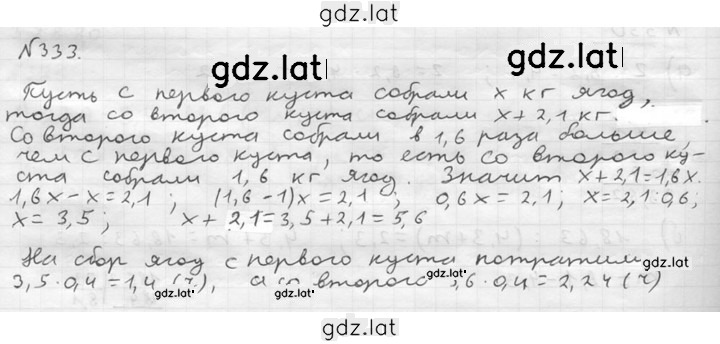 gdz.lat
№333.
gdz.lat
Пусть с первого куста собрали x кг ягод,
тогда со второго куста собрали x+2,1 кг.
Со второго куста собрали в 1,6 раза больше,
чем с первого куста, то есть со второго ку-
ста собрали 1,6 кг ягод. Значит x+2,1=1,6x.
1,6x-x=2,1; (1,6-1)x=2,1; 0,6x=2,1; x=2,1:0,6;
x=3,5; x+2,1=3,5+2,1=5,6
На сбор ягод с первого куста потратили
gdz.lat
3,5·0,4=1,4(ч), а со второго 5,6·0,4=2,24(ч)
gdz.lat gdz.lat
gdz.lat